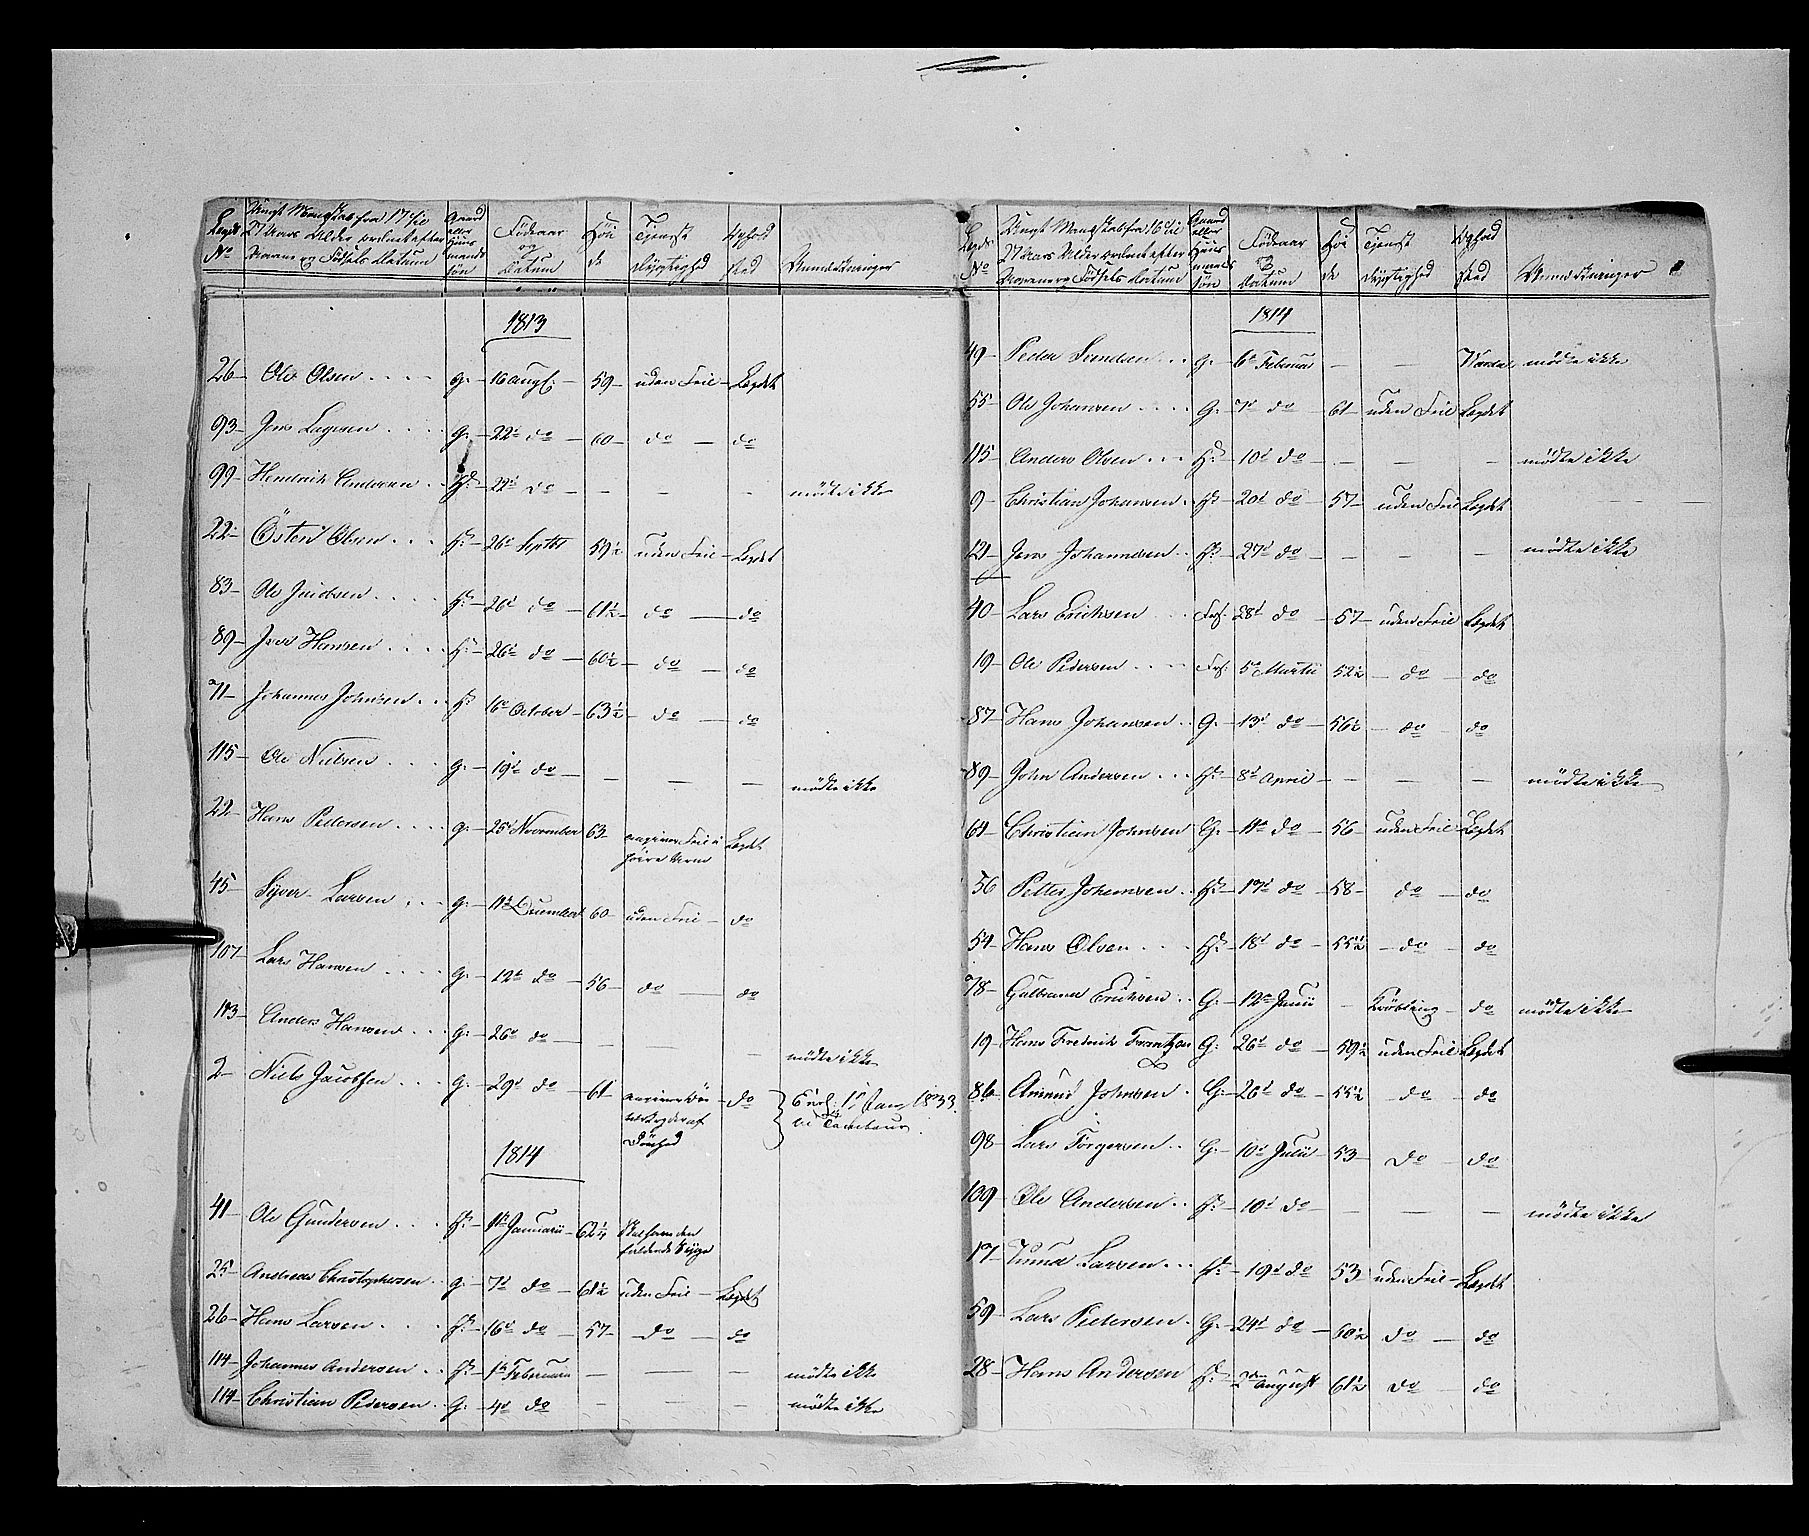 Legds No | Ungt Mandskab fra 17 til 27 Aars Alder ordnet efter Navne og Fødsels Datum | Gaard eller Huus mands søn | Fødeaar og Datum | Høi de | Tjeneste Dygtighed | Ophold sted | Anmærkninger
1813
26 - Ole Olsen . . . . | G. - | 16 Augs. - | 59 - | uden Feil - | Legdet
93 - Jens Larsen . . . . | G. - | 22d do - | 60 - | do - | do
99 - Hendrik Andersen . . | Hd. | 22d do - | - | - | - | mødte ikke
22 - Østen Olsen . . . | Hd. - | 26d Septbr | 59½ - | uden Feil - | Legdet
83 - Ole . . . . | Hd. - | 26d do - | 61½ - | do - | do
89 - Iver Hansen . . . . | Hd. - | 26d do - | 60½ - | do - | do
71 - Johannes Johnsen . . . | Hd. | 16d October - | 63½ - | do - | do
115 - Ole Nielsen . . . | G. - | 19d do - | - | - | - | mødte ikke
22 - Hans Pedersen . . . . | G. - | 25d November | 63 - | angiver Feil i høire Arm | Legdet
45 - Syver Larsen . . | G. - | 11d December | 60 - | uden Feil - | do
107 - Lars Hansen . . . . | G. - | 12d do - | 56 - | do - | do
113 - Anders Hansen . . . | G. - | 26d do - | - | - | - | mødte ikke
2 - Niels Jacobsen . . . | G. - | 29d do - | 61 - | angiver af Døvhed | do | 1 Jan. 1833. Tambour.
1814
41 - Ole Gundersen . . . | Hd. - | 1d Januarii - | 62¼ - | faldende Syge
25 - Andreas Christophersen . . | G. - | 7d do - | 61½ | uden Feil - | Legdet
26 - Hans Larsen . . . . | Hd. - | 16d do - | 57 - | do - | do
114 - Johannes Andersen . . | Hd. - | 1d Februarii - | - | - | - | mødte ikke
114 - Christian Pedersen . . | G. - | 4d do - | - | - | - | mødte ikke
Legds No | Ungt Mandskab fra 16 til 27 Aars Alder ordnet efter Navne og Fødsels Datum | Gaard eller Huus mands søn | Fødeaar og Datum | Høi de | Tjeneste Dygtighed | Ophold sted | Anmærkninger
1814
49 - Peder Svendsen . . . | G. - | 6d Februar | - | - | Vardal | mødte ikke
55 - Ole Johansen . . . . | G. - | 7d do | 61 - | uden Feil | Legdet
115 - Anders Olsen . . . | Hd. - | 10d do | - | - | - | mødte ikke
9 - Christian Johansen . | Hd. - | 20d do - | 57 - | uden Feil | Legdet
121 - Jens Johannesen . . | Hd. - | 27d do - | - | - | - | mødte ikke
40 - Lars Erichsen . . . | 28d do - | 57 - | uden Feil | Legdet
19 - Ole Pedersen . . . . | 5d Martii | 52½ - | do - | do
87 - Hans Johansen . . | G. - | 13d do - | 56½ - | do - | do
89 - John Andersen . . . | Hd. - | 8d April - | - | - | - | mødte ikke
64 - Christian Johnsen | G. - | 11d do - | 56 - | uden Feil | Legdet
56 Petter Johansen . . | Hd. - | 17d do - | 58 - | do - | do
54 - Hans Olsen . . . | Hd. - | 18d do - | 55½ - | do - | do
78 - Gulbrand Erichsen . . | G. - | 12d Junii | - | Krøbling - | do | mødte ikke
19 - Hans Fredrik Frantzen | G. - | 26d do - | 59½ | uden Feil | Legdet
86 - Amund Johnsen . | G. - | 26d do - | 55½ | do - | do
98 - Lars Torgersen . . | G. - | 10d Julii - | 53 - | do - | do
139 - Ole Andersen . . | Hd. - | 10d do - | - | - | - | mødte ikke
17 - Larsen . . . | Hd. - | 19d do - | 53 | uden Feil - | Legdet
59 - Lars Pedersen . | G. - | 24d do - | 60½ | do - | do
28 - Hans Andersen | Hd. - | 2den August | 61½ | do - | do